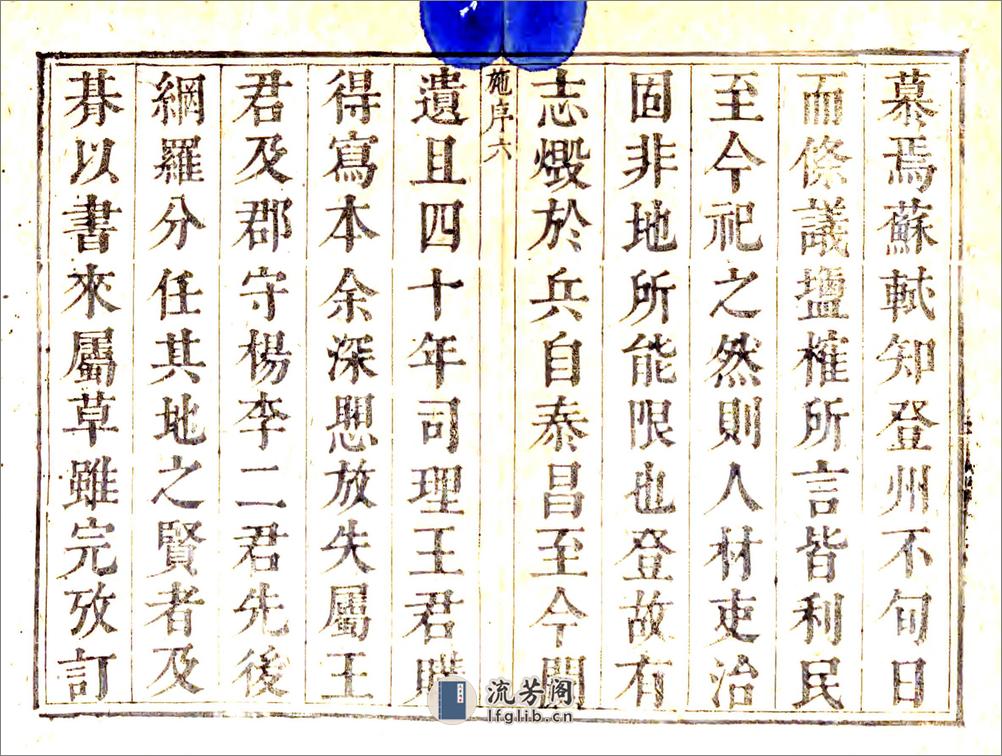 慕焉蘇軾知登州不旬日
而條議鹽榷所言皆利民
至今祀之然則人材吏治
固非地所能限也登故有
志燬於兵自泰昌至今闕
施序六
遺且四十年司理王君購
得寫本余深愳放失屬王
君及郡守楊李二君先後
網羅分任其地之賢者及
朞以書來屬草雖完攷訂
流芳阁
lfglib.cn